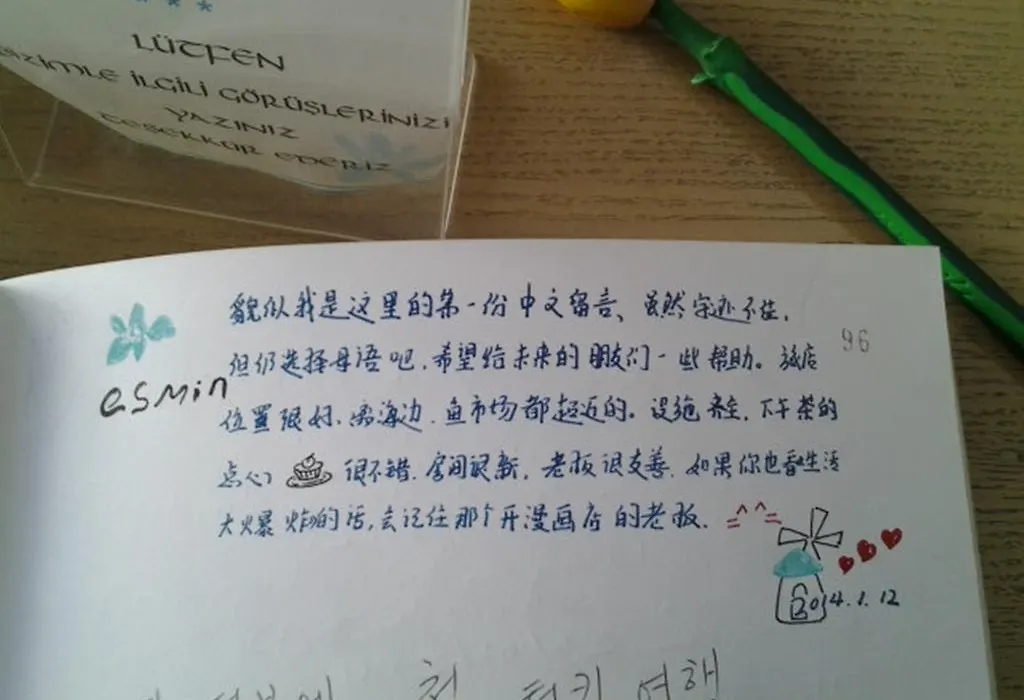 LÜTFEN
BİZİMLE İLGİLİ GÖRÜŞLERİNİZİ
YAZINIZ
TEŞEKKÜR EDERİZ
貌似我是这里的第一份中文留言、虽然字迹不佳,
96
esmin
但仍选择母语吧,希望给未来的朋友们一些帮助。旅店
位置很好、离海边、鱼市场都超近的。设施齐全,下午茶的
点心 很不错,房间很新,老板很友善,如果你也看生活
大火暴炸的话,会记住那个开漫画店的老板、=^^=
2014.1.12
첫 터키 여행